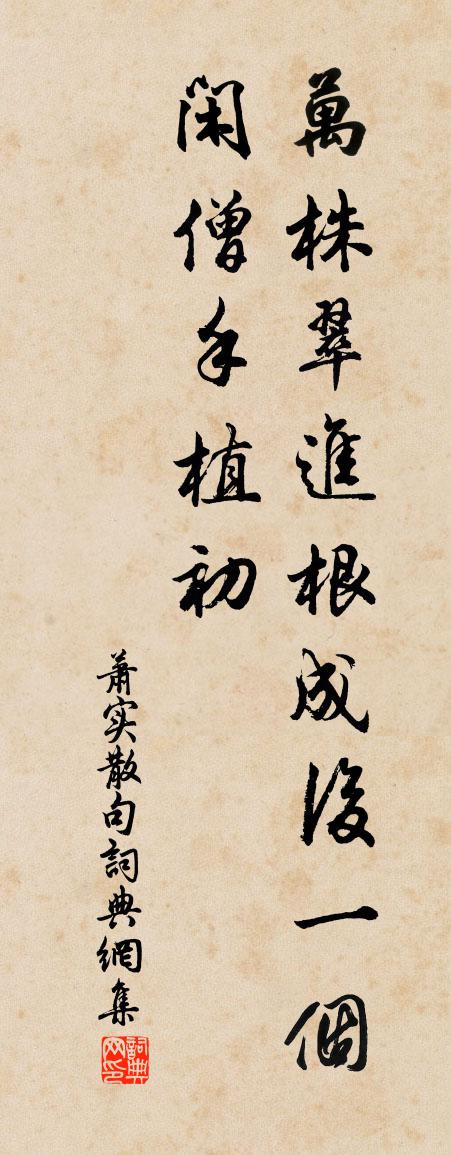 萬株翠進根成後一個
閑僧手植初
蕭实散句詞典網集
詞典网印